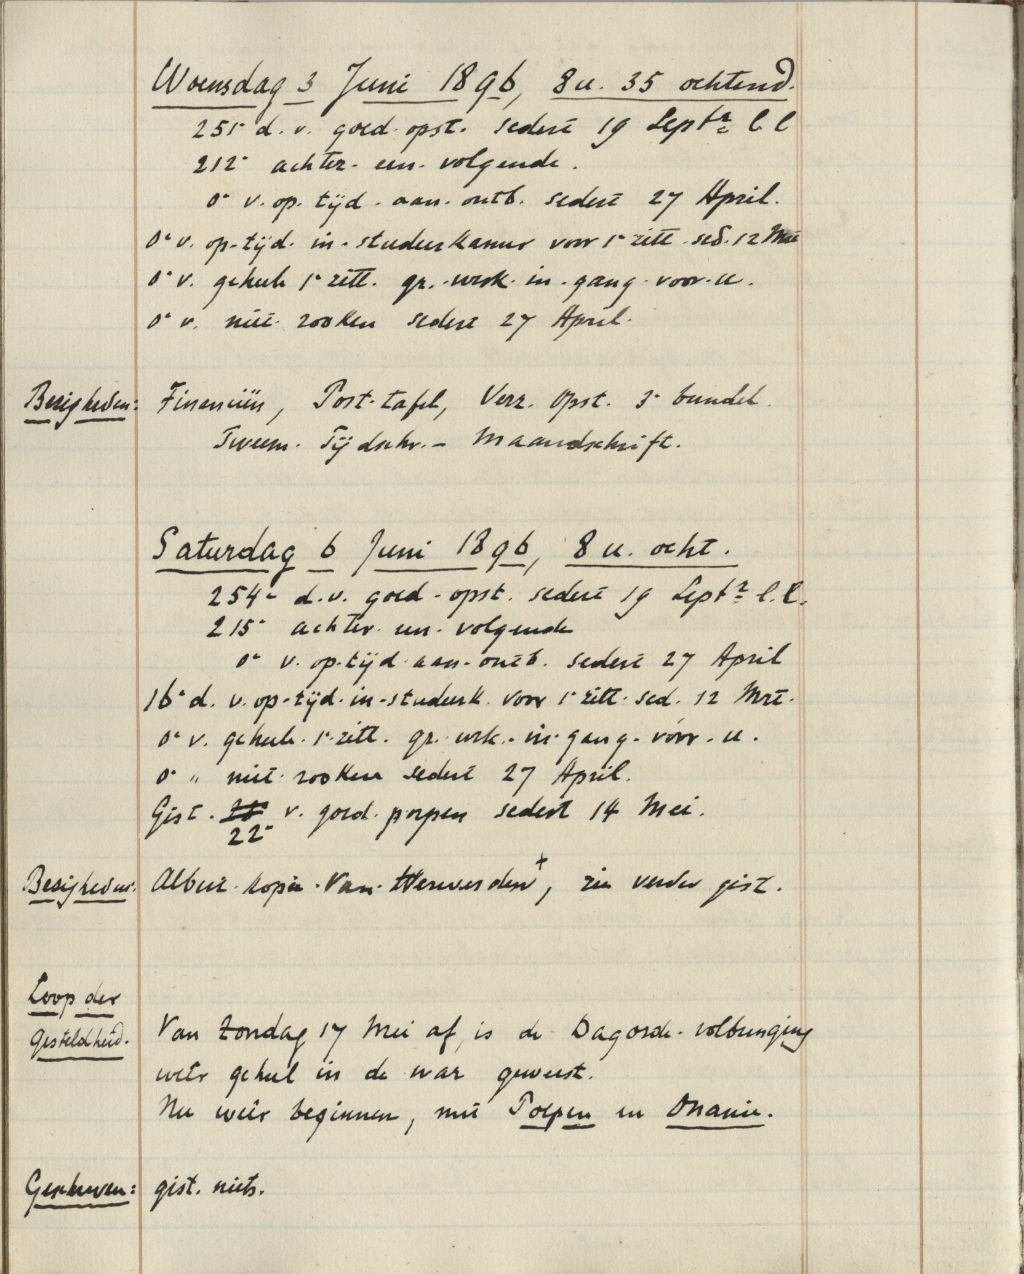 Woensdag 3 Juni 1896, 8 u. 35 ochtend.
251e d. v. goed-opst. sedert 19 Septr l.l
212e achter-een-volgende.
0e v. op-tijd-aan-ontb. sedert 27 April.
0e v. op-tijd-in-studeerkamer voor 1e zitt. sed. 12 Mei
0e v. geheele 1e zitt. gr.-wrk-in-gang-voor-u.
0e v. niet-rooken sedert 27 April.
Bezigheden: Financiën, Post-tafel, Verz. Opst. 3e bundel.
Tweem. Tijdschr. - Maandschrift.
Saturdag 6 Juni 1896, 8 u. ocht.
254e d.v. goed-opst. sedert 19 Septr l.l.
215e achter-een-volgende
0e v. op-tijd-aan-ontb. sedert 27 April
16e d. v. op-tijd-in-studeerk. voor 1e zitt. sed. 12 Mrt.
0e v. geheele-1e-zitt. gr. wrk.-in-gang-vóór-u.
0e " niet-rooken sedert 27 April.
Gist. v. goed-poepen sedert 14 Mei.
22e
Bezigheden: Albert-kopie-Van-Herwerden+, zie verder gist.
Loop der
gesteldheid.
Van Zondag 17 Mei af, is de Dagorde-volbrenging
weêr geheel in de war geweest.
Nu weêr beginnen, met Poepen en Onanie.
Geschreven: gist. niets.